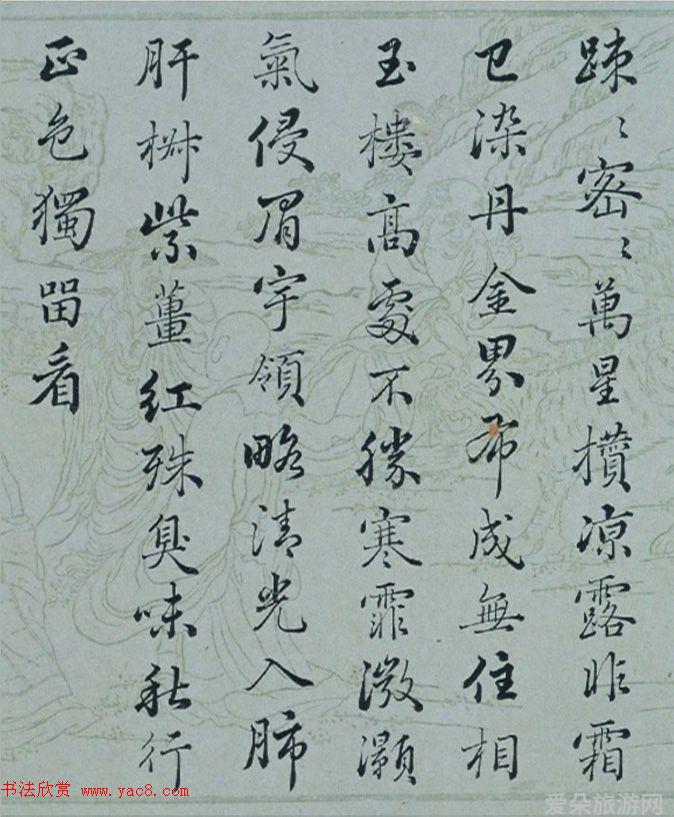 踈〻密〻萬星攢凉露非霜
已染丹金界布成無住相
玉樓高處不勝寒霏微灝
氣侵眉宇領略清光入肺
肝椒紫薑紅殊臭味秋行
正色獨留看
书法欣赏 www.yac8.com
爱朵旅游网